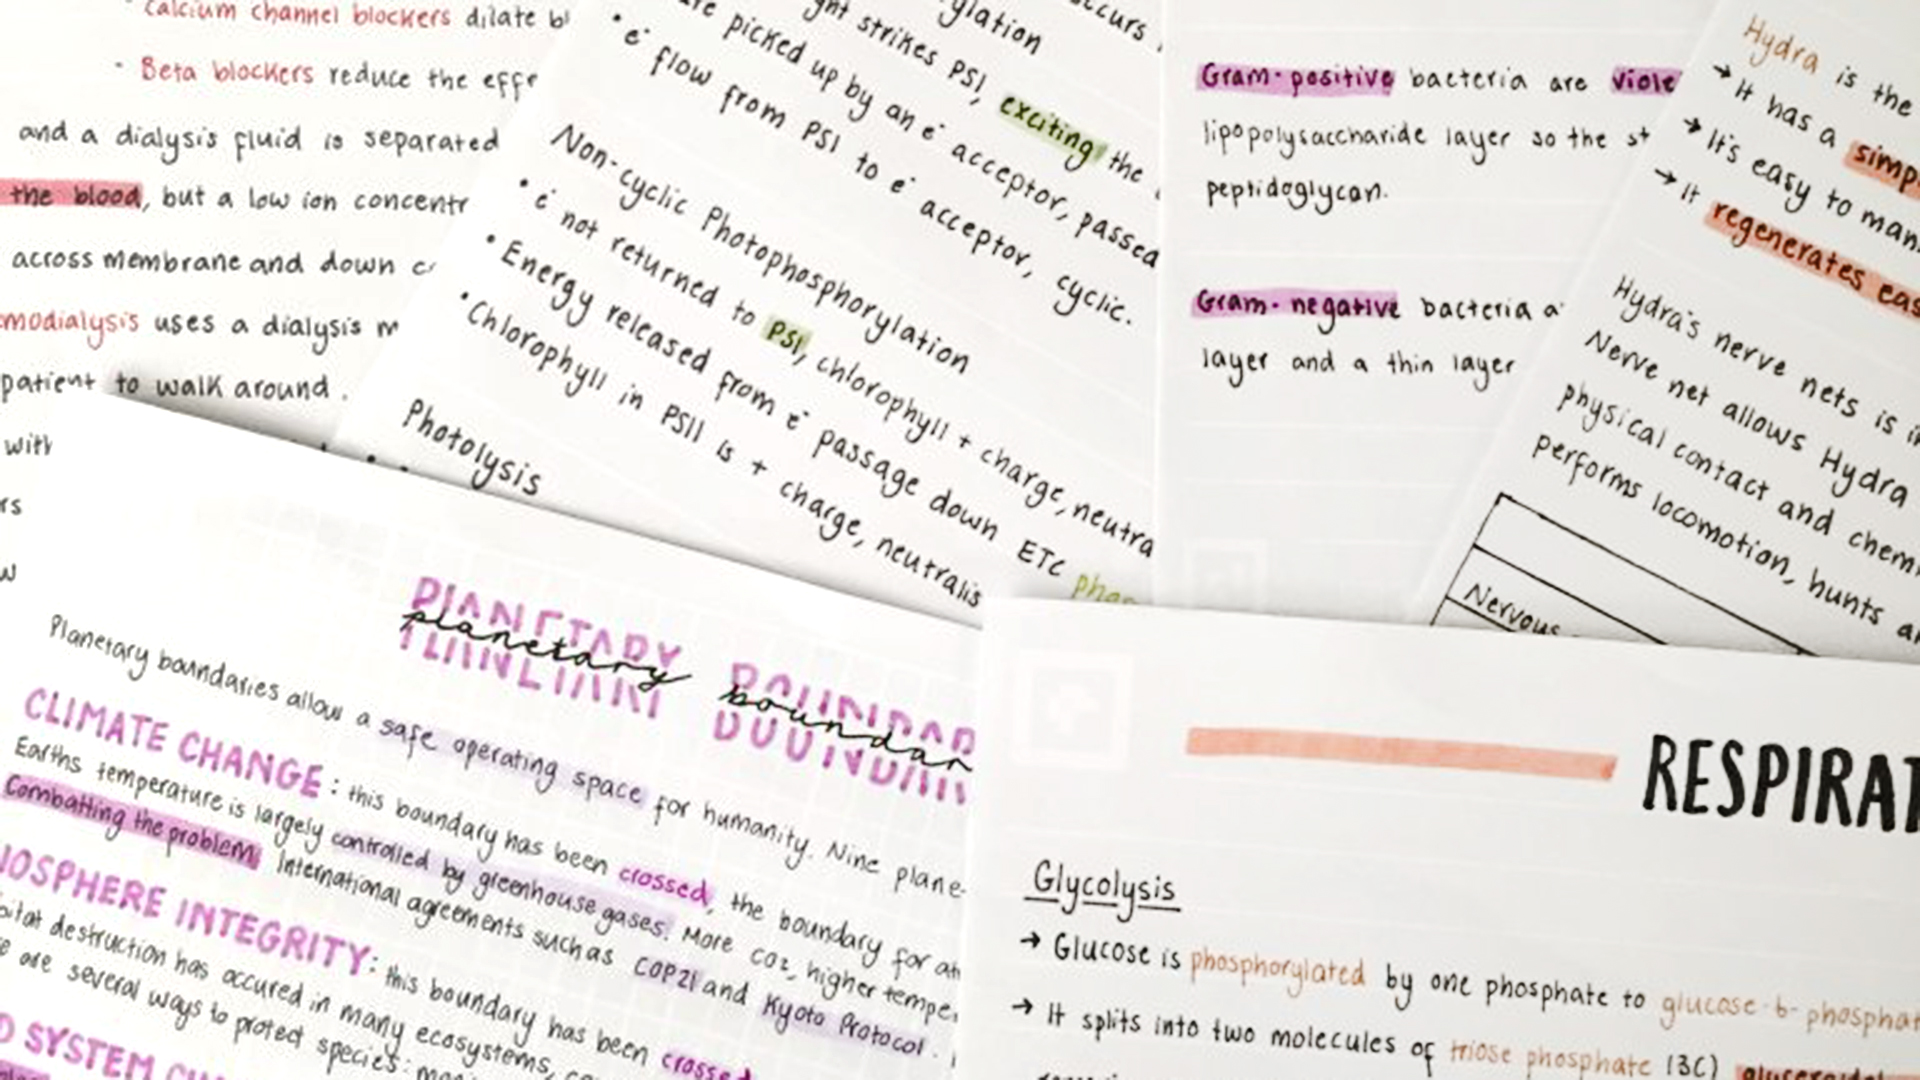 Calcium channel blockers dilate
Beta blockers reduce the
and a dialysis fluid is separated
the blood, but a low ion
across membrane and down
modialysis uses a dialysis
patient to walk around.
with
picked up by an e⁻ acceptor, passed
strikes PSI, exciting the
• e⁻ flow from PSI to e⁻ acceptor, cyclic.
Non-cyclic Photophosphorylation
• e⁻ not returned to PSI, chlorophyll + charge, neutra
• Energy released from e⁻ passage down ETC
• Chlorophyll in PSII is + charge, neutralis
Photolysis
Gram-positive bacteria are viole
lipopolysaccharide layer so the st
peptidoglycan.
Gram-negative bacteria a
layer and a thin layer
Hydra is the
→ It has a simp
→ It's easy to man
→ It regenerates eas
Hydra's nerve nets is
Nerve net allows Hydra
physical contact and chem
performs locomotion, hunts
Nervous
planetary boundar
Planetary boundaries allow a safe operating space for humanity. Nine plane-
CLIMATE CHANGE: this boundary has been crossed, the boundary for
Earths temperature is largely controlled by greenhouse gases. More CO2, higher tempe
Combatting the problem: International agreements such as COP21 and Kyoto Protocol.
IOSPHERE INTEGRITY: this boundary has been crossed
destruction has accured in many ecosystems,
are several ways to protect species:
SYSTEM
RESPIRAT
Glycolysis
→ Glucose is phosphorylated by one phosphate to glucose-6-phosphat
→ It splits into two molecules of triose phosphate (3C)